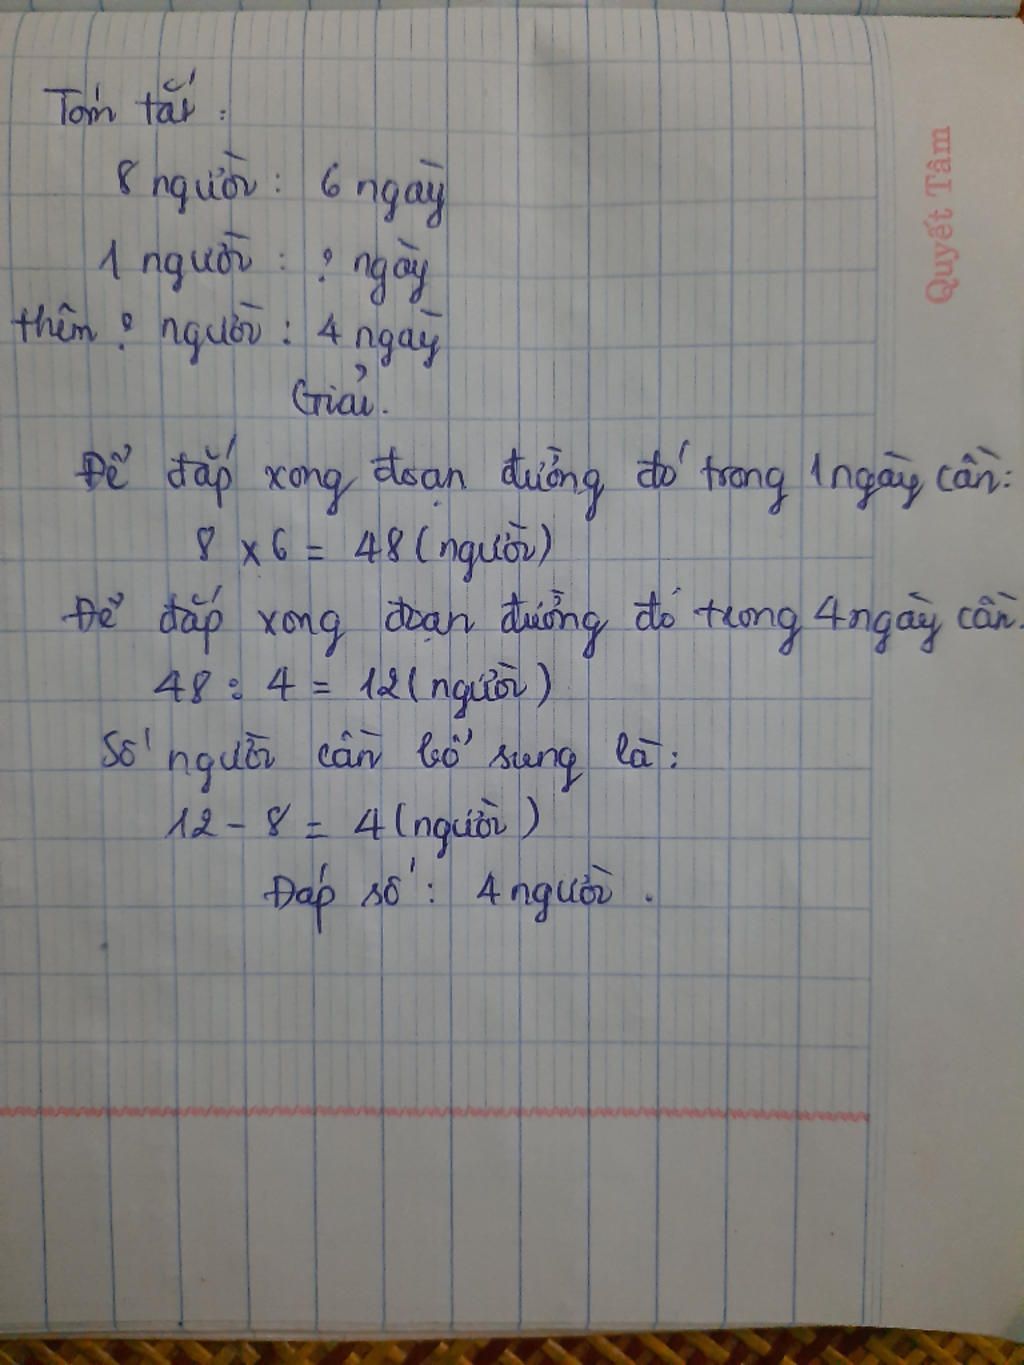 Tóm tắt :
8 người : 6 ngày
1 người : ? ngày
thêm ? người : 4 ngày
Giải.
Để đắp xong đoạn đường đó trong 1 ngày cần:
8 x 6 = 48 (người)
Để đắp xong đoạn đường đó trong 4 ngày cần.
48 : 4 = 12 (người)
Số người cần bổ sung là :
12 - 8 = 4 (người)
Đáp số : 4 người .
Quyết Tâm